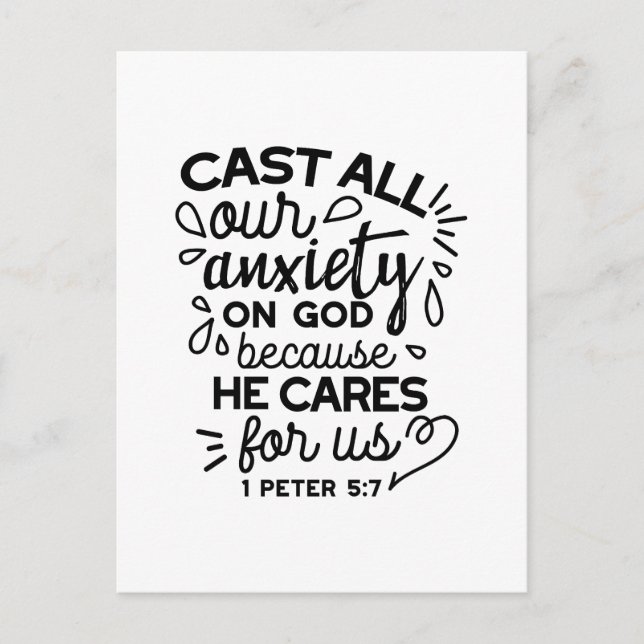 CAST ALL
our
anxiety
ON GOD
because
HE CARES
for us
1 PETER 5:7